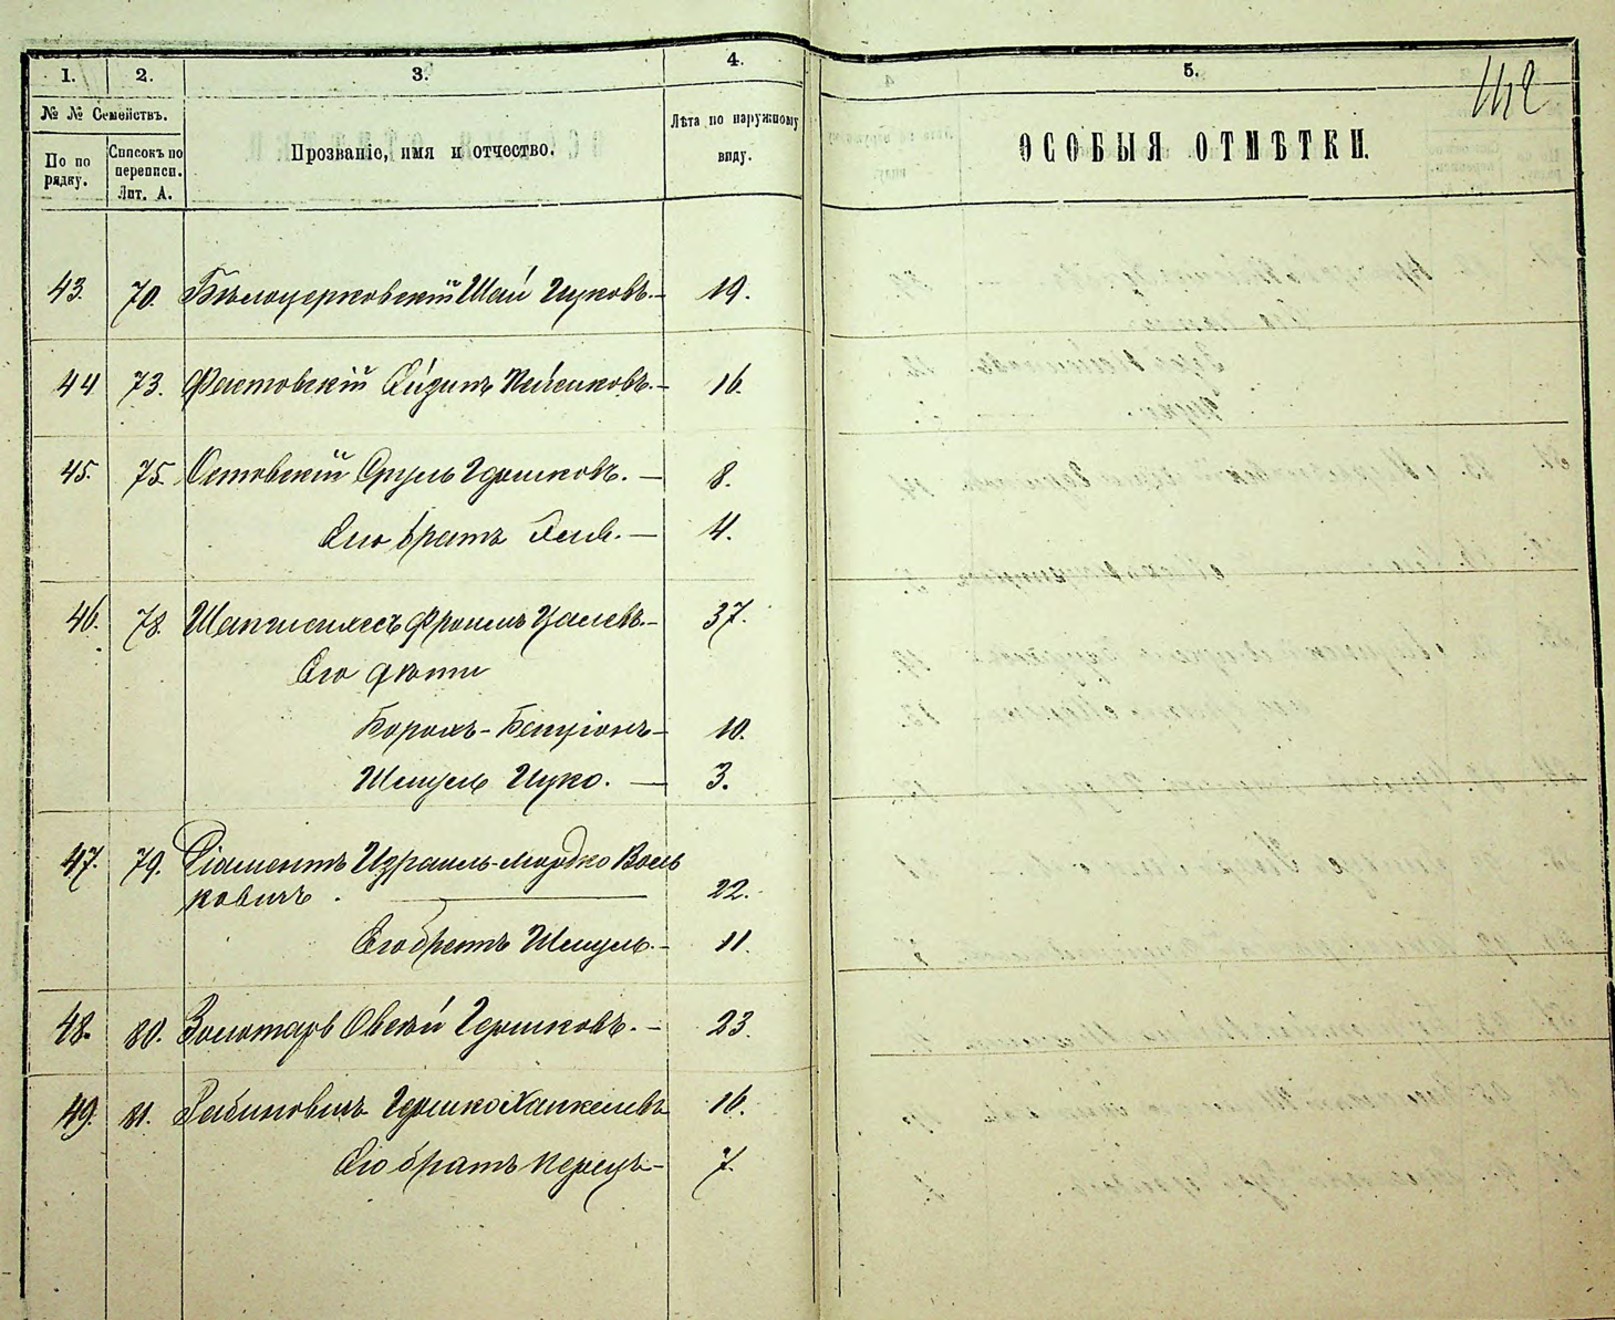 1.
2.
3.
4.
5.
112
№ № Семействъ.
По порядку.
Списокъ по переписи. Лит. А.
Прозваніе, имя и отчество.
Лѣта по наружному виду.
ОСОБЫЯ ОТМѢТКИ.
43. 70. Бѣлоцерковскій Шай Ицковъ.— 19.
44 73. Фастовскій Айзикъ Пейсиховъ.— 16.
45. 75. Срулъ Гершковъ. — 8.
Его братъ — 4.
46. 78. Фроимъ — 37.
Его дѣти
Борохъ-Бенціонъ— 10.
Шмуль Ицко. — 3.
47. 79. Діаментъ Израиль-Мордко Воль
ковичъ. — 22.
Его братъ Шмуль.— 11.
48. 80. Золотарь Овсѣй Гершковъ. — 23.
49. 81. Рабиновичъ Гершко Янкелевъ 16.
Его братъ Перецъ— 7.